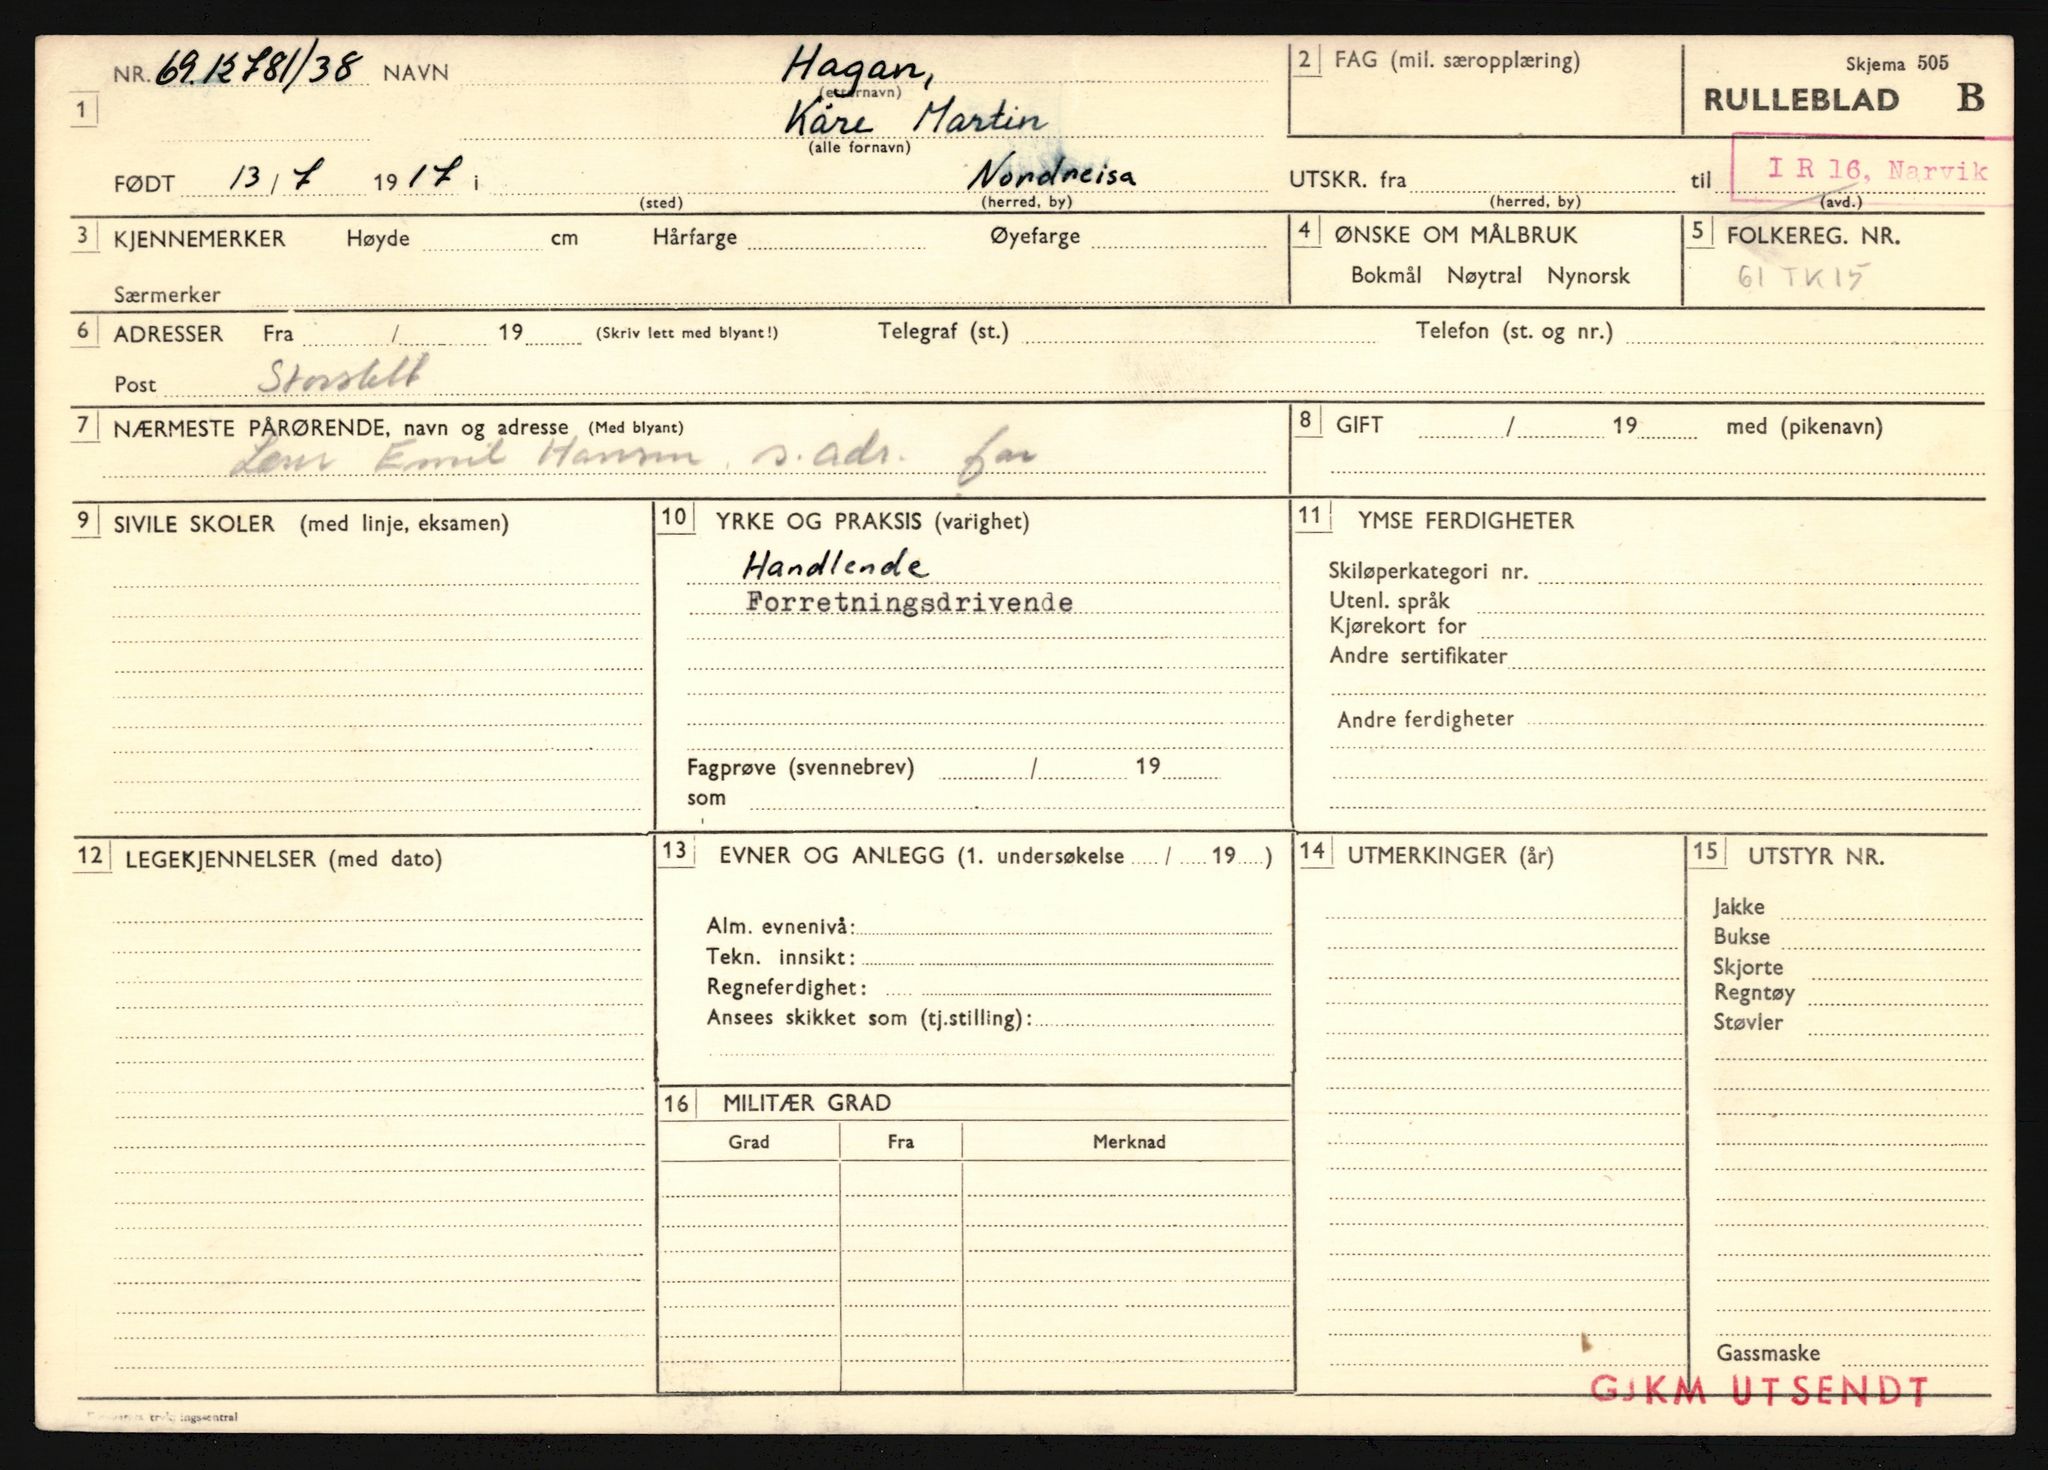 NR. 69 K 781/38 NAVN Hagan, 2 FAG (mil. særopplæring) Skjema 505
(etternavn) RULLEBLAD B
1 Kåre Martin
(alle fornavn)
FØDT 13 / 7 1917 i Nordreisa UTSKR. fra til I R 16, Narvik
(sted) (herred, by) (herred, by) (avd.)
3 KJENNEMERKER Høyde cm Hårfarge Øyefarge 4 ØNSKE OM MÅLBRUK 5 FOLKEREG. NR.
Bokmål Nøytral Nynorsk 61 TK 15
Særmerker
6 ADRESSER Fra / 19 (Skriv lett med blyant!) Telegraf (st.) Telefon (st. og nr.)
Post Storslett
7 NÆRMESTE PÅRØRENDE, navn og adresse (Med blyant) 8 GIFT / 19 med (pikenavn)
Emil Hansen s. adr. far
9 SIVILE SKOLER (med linje, eksamen) 10 YRKE OG PRAKSIS (varighet) 11 YMSE FERDIGHETER
Handlende
Forretningsdrivende
Skiløperkategori nr.
Utenl. språk
Kjørekort for
Andre sertifikater
Andre ferdigheter
Fagprøve (svennebrev) / 19
som
12 LEGEKJENNELSER (med dato) 13 EVNER OG ANLEGG (1. undersøkelse / 19 ) 14 UTMERKINGER (år) 15 UTSTYR NR.
Alm. evnenivå:
Tekn. innsikt:
Regneferdighet:
Ansees skikket som (tj.stilling):
Jakke
Bukse
Skjorte
Regntøy
Støvler
16 MILITÆR GRAD
Grad Fra Merknad
Gassmaske
GJKM UTSENDT